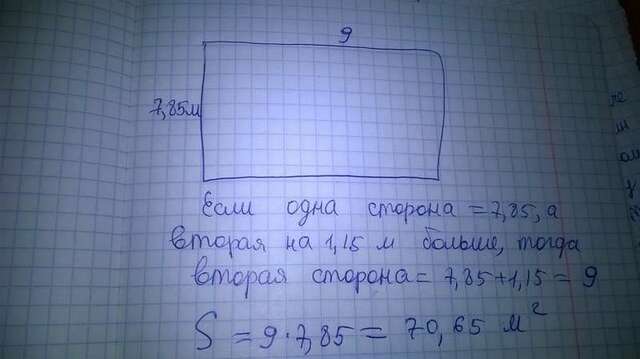 9
7,85м
Если одна сторона = 7,85, а
вторая на 1,15 м больше, тогда
вторая сторона = 7,85+1,15 = 9
S = 9·7,85 = 70,65 м²